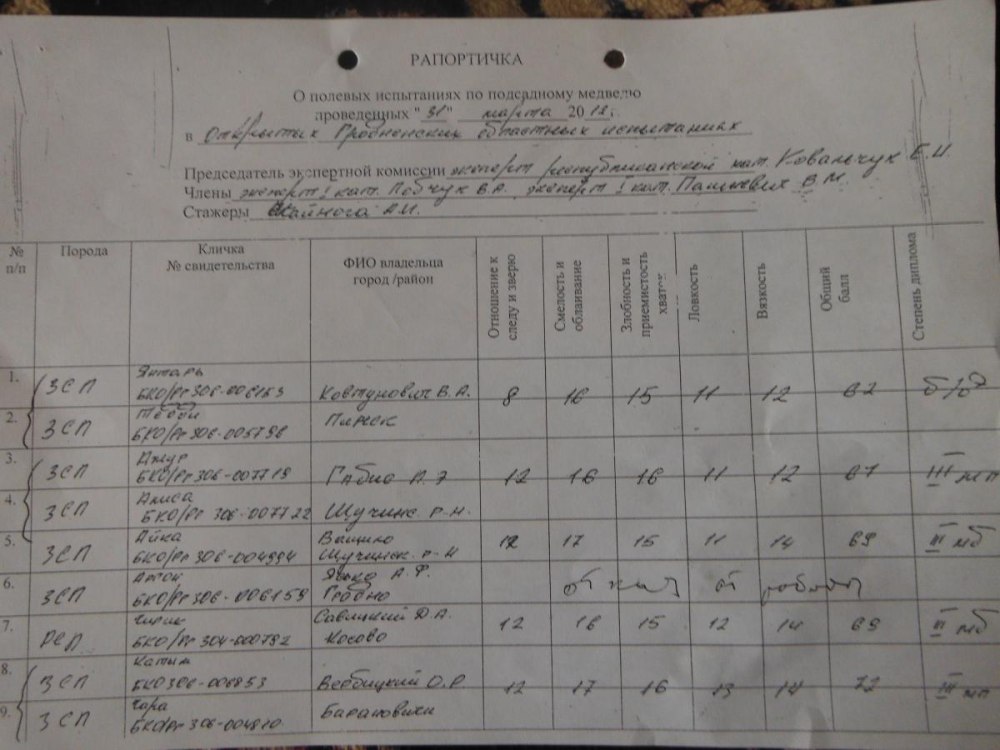 РАПОРТИЧКА
О полевых испытаниях по подсадному медведю
проведенных "31" марта 2012 г.
в Открытых Гродненских областных испытаниях
Председатель экспертной комиссии эксперт республиканской кат. Ковальчук Е.И
Члены эксперт I кат. В.А. эксперт I кат. Пашкевич В.М.
Стажеры А.И.
№ п/п Порода Кличка № свидетельства ФИО владельца город /район Отношение к следу и зверю Смелость и облаивание Злобность и приемистость хваток Ловкость Вязкость Общий балл Степень диплома
1. ЗСП Янтарь БКО/Рг 306-006153 Ковтунович В.А. 8 16 15 11 12 62 б/д
2. ЗСП Тедди БКО/Рг 306-005796 Пинск
3. ЗСП Джур БКО/Рг 306-007719 А.Э 12 16 16 11 12 67 III мп
4. ЗСП Алиса БКО/Рг 306-007722 Щучинс р-н.
5. ЗСП Айка БКО/Рг 306-004994 Щучинск. р-н 12 17 15 11 14 69 III мб
6. ЗСП БКО/Рг 306-006159 А.Ф. Гродно от работы
7. РЕЛ БКО/Рг 304-000792 Савицкий Д.А. Косово 12 16 15 12 14 69 III мб
8. ЗСП Катым БКО 306-006853 Вербицкий О.Р 12 17 16 13 14 72 III мп
9. ЗСП Чара БКО/Рг 306-004810 Барановичи